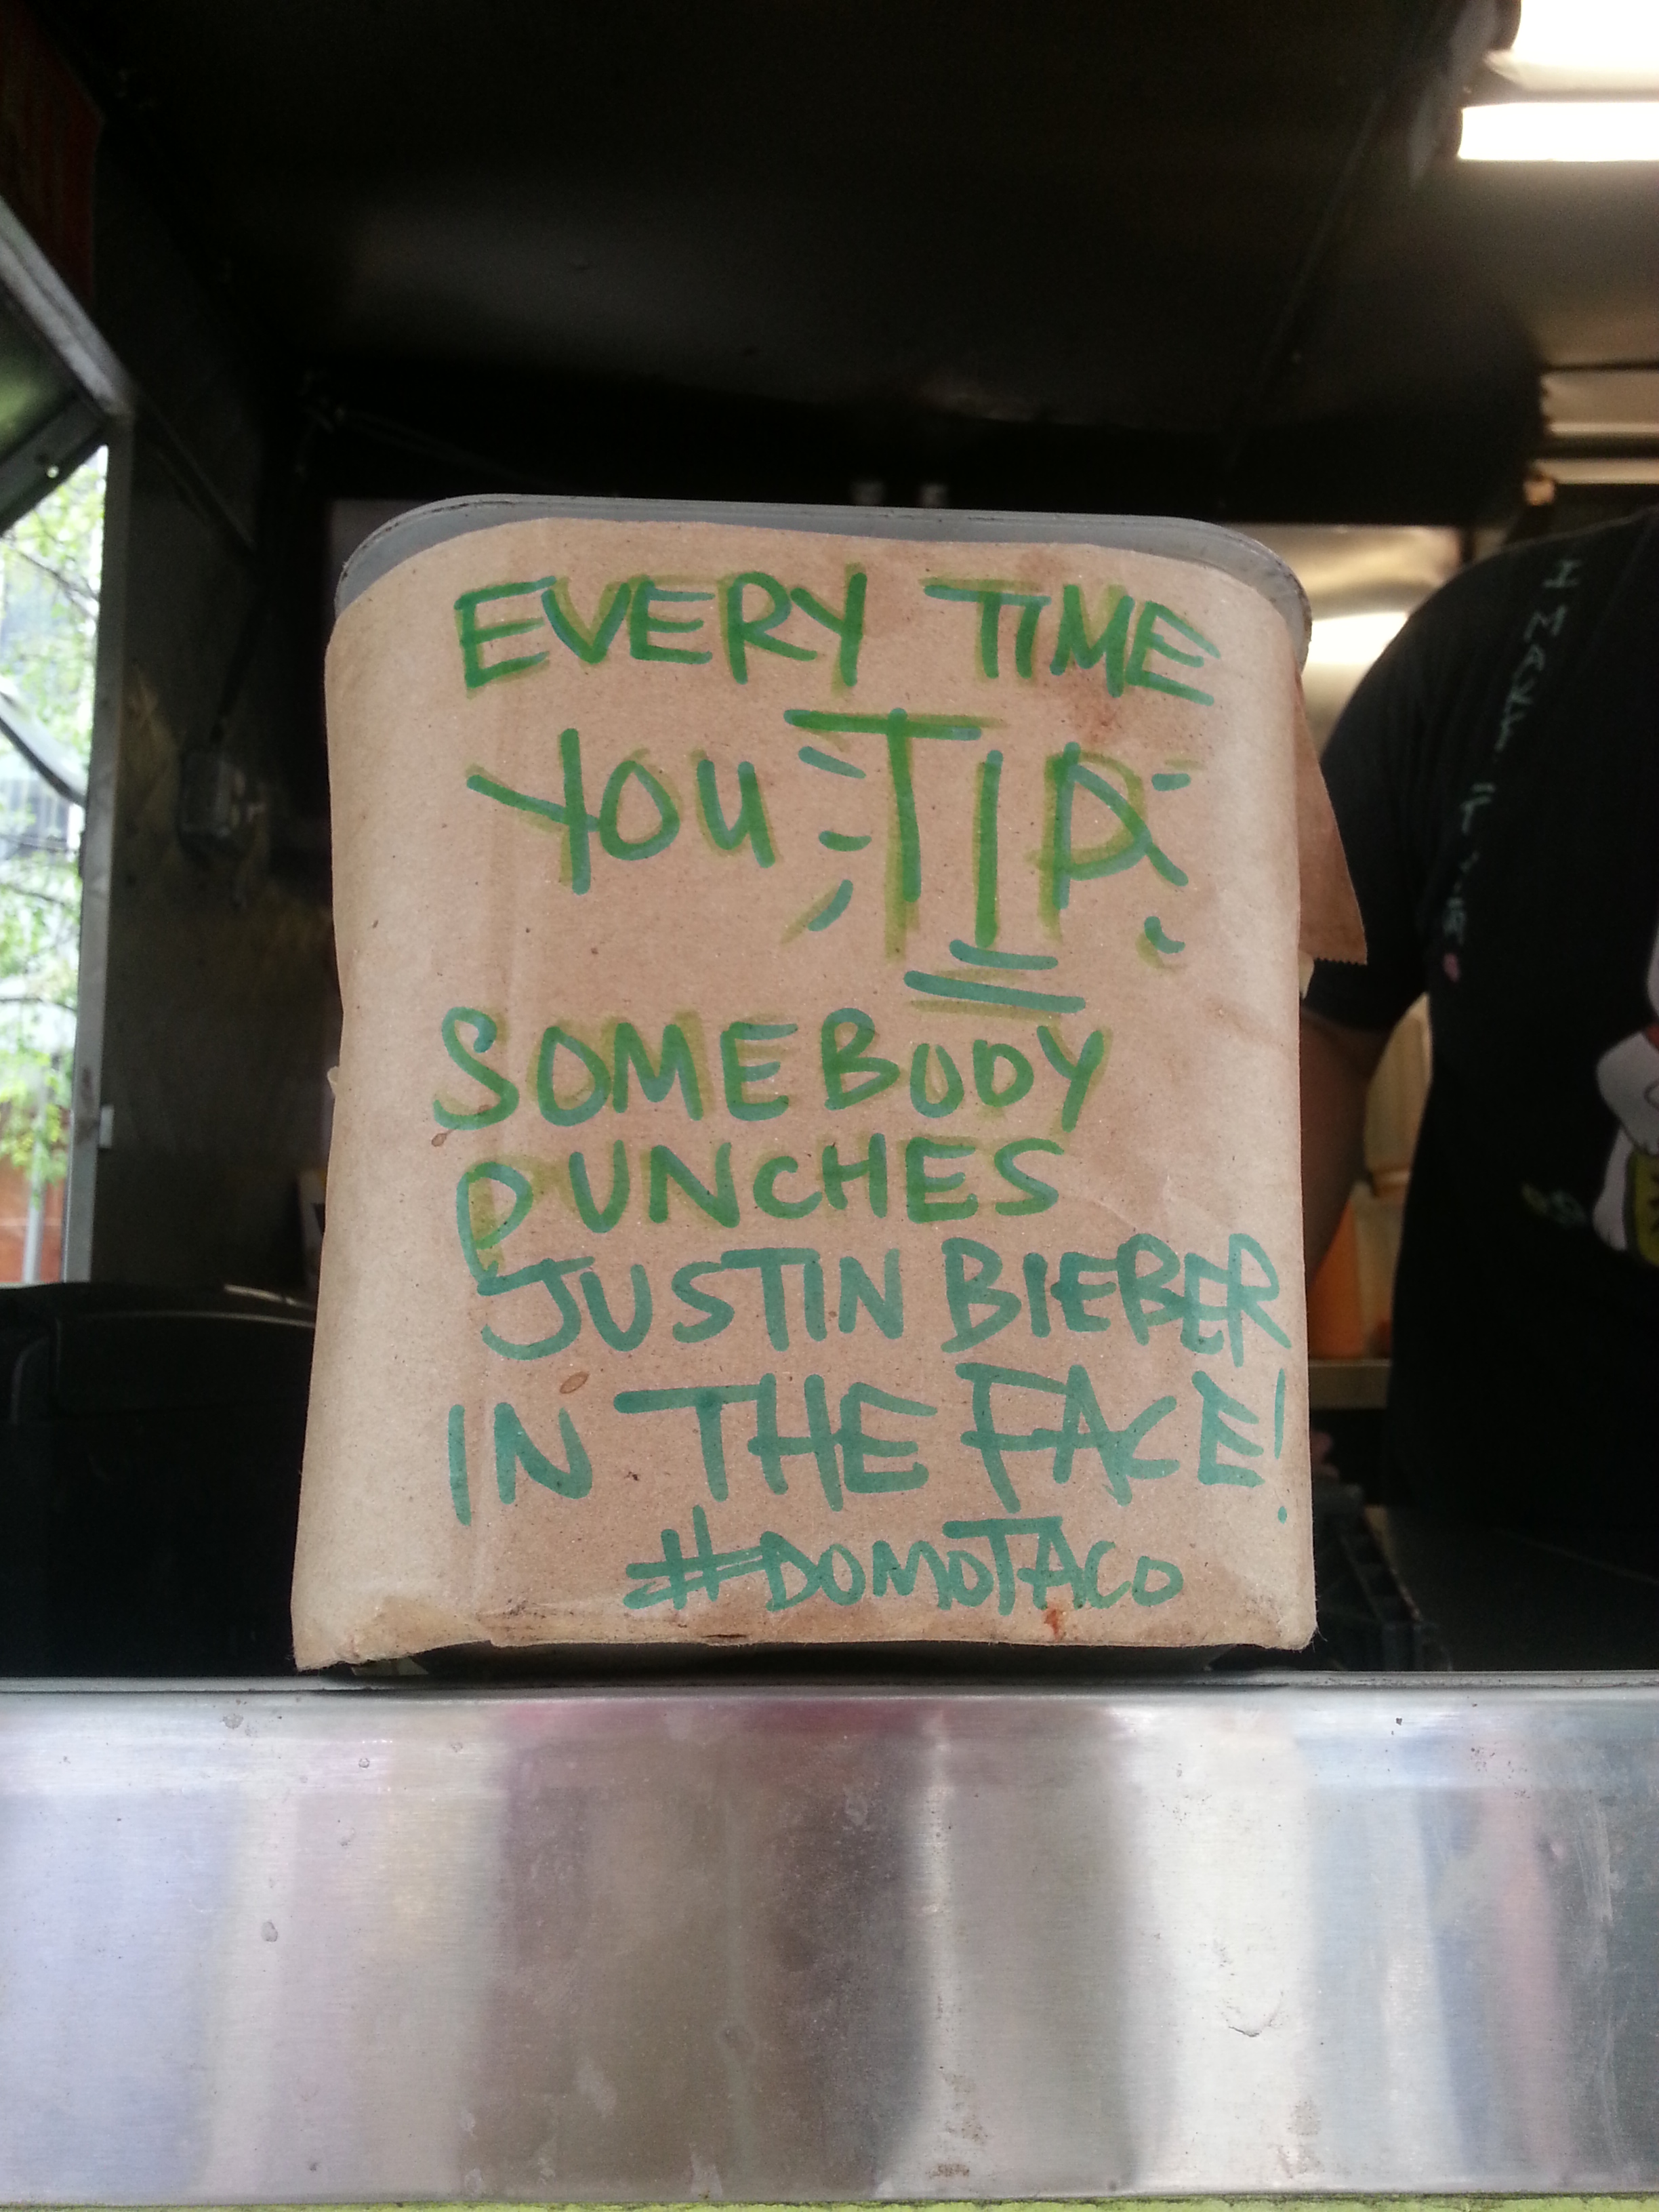 EVERY TIME
YOU TIP
SOMEBODY
PUNCHES
JUSTIN BIEBER
IN THE FACE!
#DOMOTACO
I MAKE IT